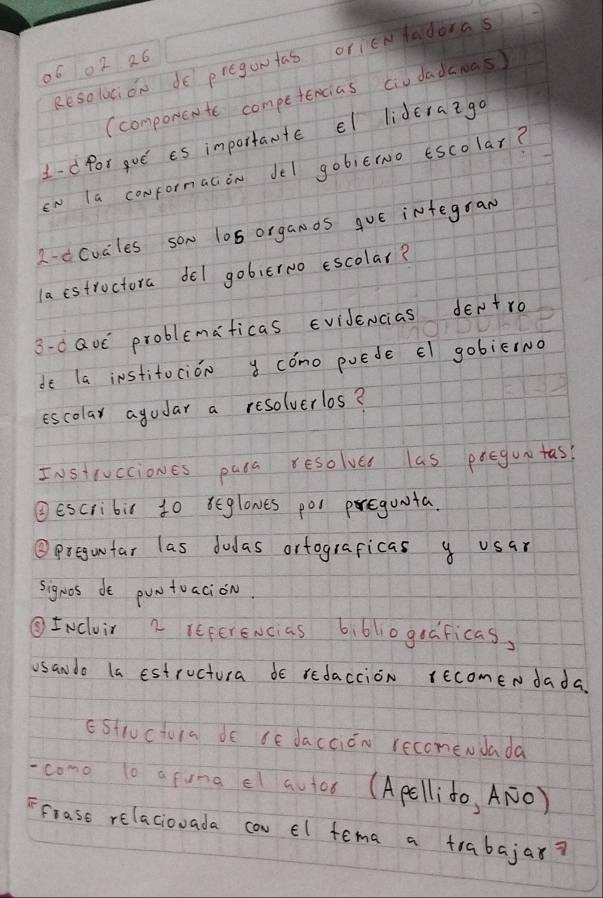 06 02 26
Resolución de preguntas orientadoras
(componente competencias ciudadanas)
1-¿Por qué es importante el liderazgo
en la conformación del gobierno escolar?
2-¿Cuáles son los organos que integran
la estructura del gobierno escolar?
3-¿Qué problemáticas evidencias dentro
de la institución y cómo puede el gobierno
escolar ayudar a resolverlos?
Instrucciones para resolver las preguntas:
① escribir 10 reglones por pregunta.
② preguntar las dudas ortograficas y usar
signos de puntuación.
③ Incluir 2 referencias bibliográficas,
usando la estructura de redacción recomendada.
estructura de redacción recomendada
-como lo afirma el autor (Apellido, AÑO)
"Frase relacionada con el tema a trabajar"